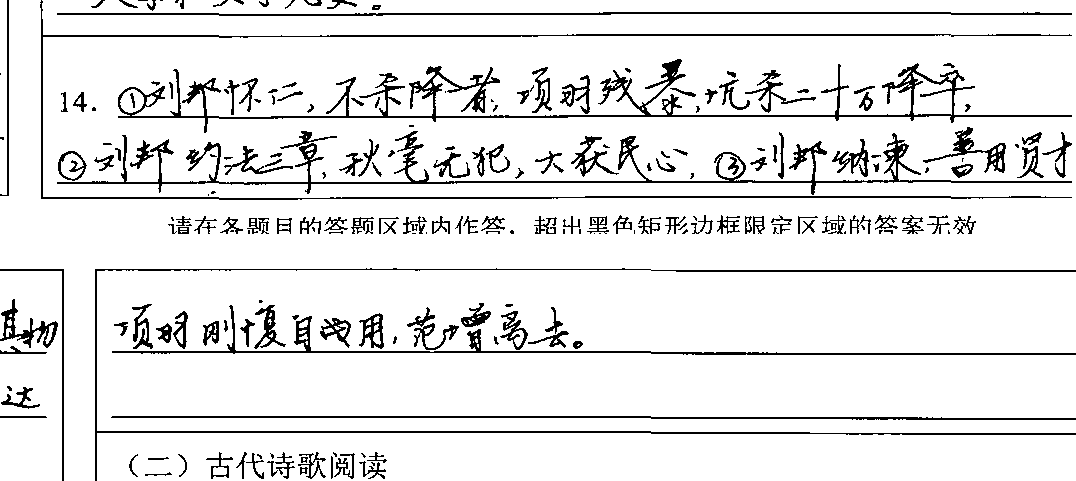 14. ①刘邦怀仁,不杀降者,项羽残暴,坑杀二十万降卒,
②刘邦约法三章,秋毫无犯,大获民心,③刘邦纳谏,善用贤才
请在各题目的答题区域内作答,超出黑色矩形边框限定区域的答案无效
其物
项羽刚愎自用,范增离去。
达
(二)古代诗歌阅读